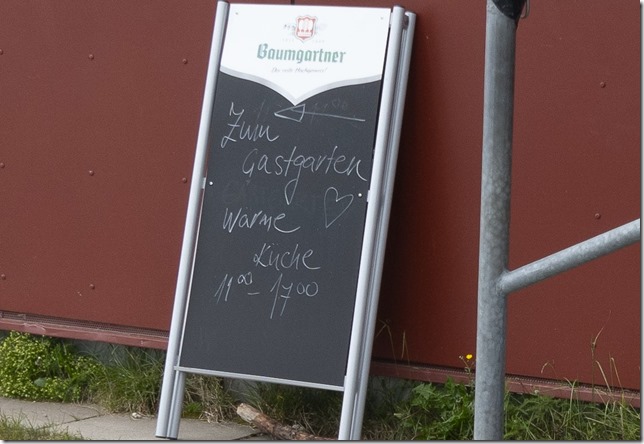 Baumgartner
Zum
Gastgarten
Warme
Küche
11⁰⁰ - 17⁰⁰